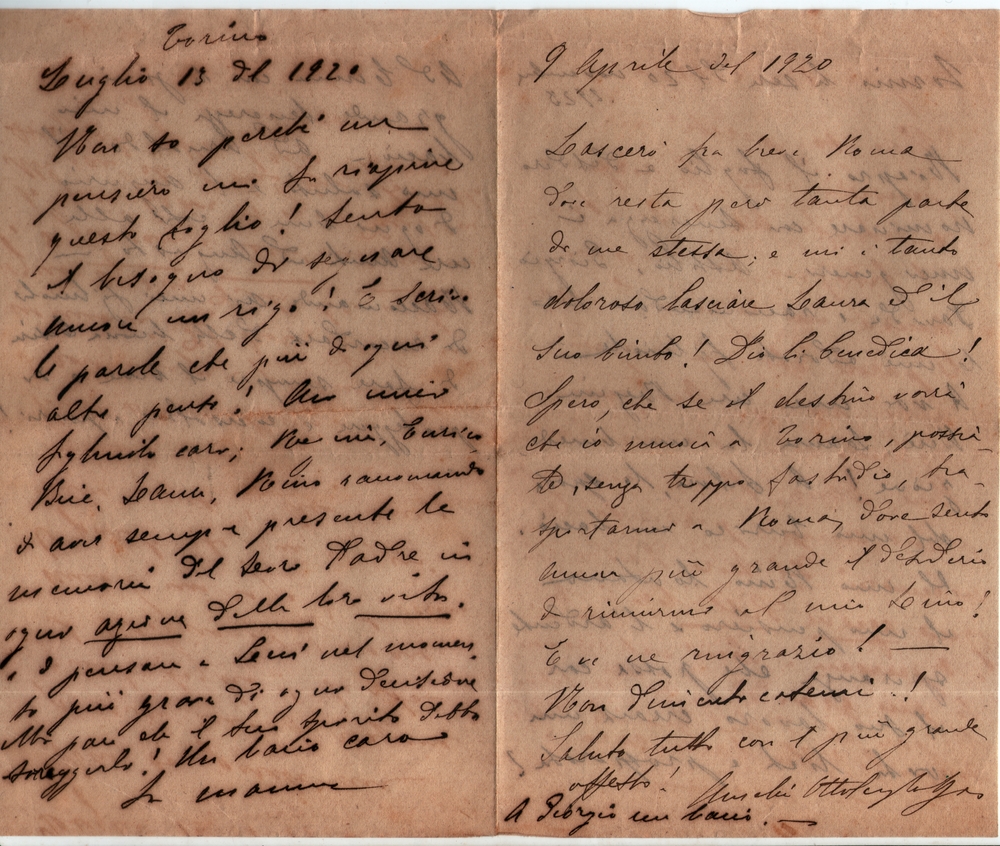 Torino
Luglio 13 del 1920
Non so perché un
pensiero mi fa riaprire
questo foglio! Sento
il bisogno di segnare
ancora un rigo! E scrivo
le parole che più di ogni
altra sento! Un unico
figliuolo caro; Enrico
Bice, Laura, Nino raccomando
di aver sempre presente la
memoria del loro Padre in
ogni azione della loro vita.
e di pensare a Lui nel momen
to più grave di ogni decisione
Mi pare che il suo spirito debba
sorreggerlo! Un bacio caro
La mamma
9 Aprile del 1920
Lascerò fra breve Roma
dove resta però tanta parte
di me stessa, e mi è tanto
doloroso lasciare Laura ed il
suo bimbo! Dio li benedica!
Spero, che se il destino vorrà
che io muoia a Torino, possia
te, senza troppo fastidio, tra-
sportarmi a Roma, dove sento
ancor più grande il desiderio
di riunirmi al mio Lino!
E ve ne ringrazio!
Non dimenticatemi!
Saluto tutti con il più grande
affetto!
A Giorgio un bacio.